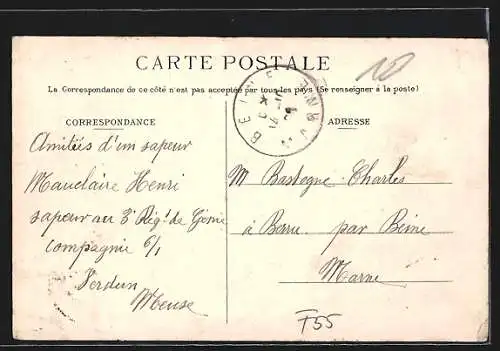 CARTE POSTALE
La Correspondance de ce côté n'est pas acceptée par tous les pays (Se renseigner à la poste)
CORRESPONDANCE
ADRESSE
BEINE
MARNE
Amitiés d'un sapeur
Mauclaire Henri
sapeur au 3e Régt de Génie
compagnie 6/1
Verdun
Meuse
M Bastogne Charles
à Berru par Beine
Marne
F55